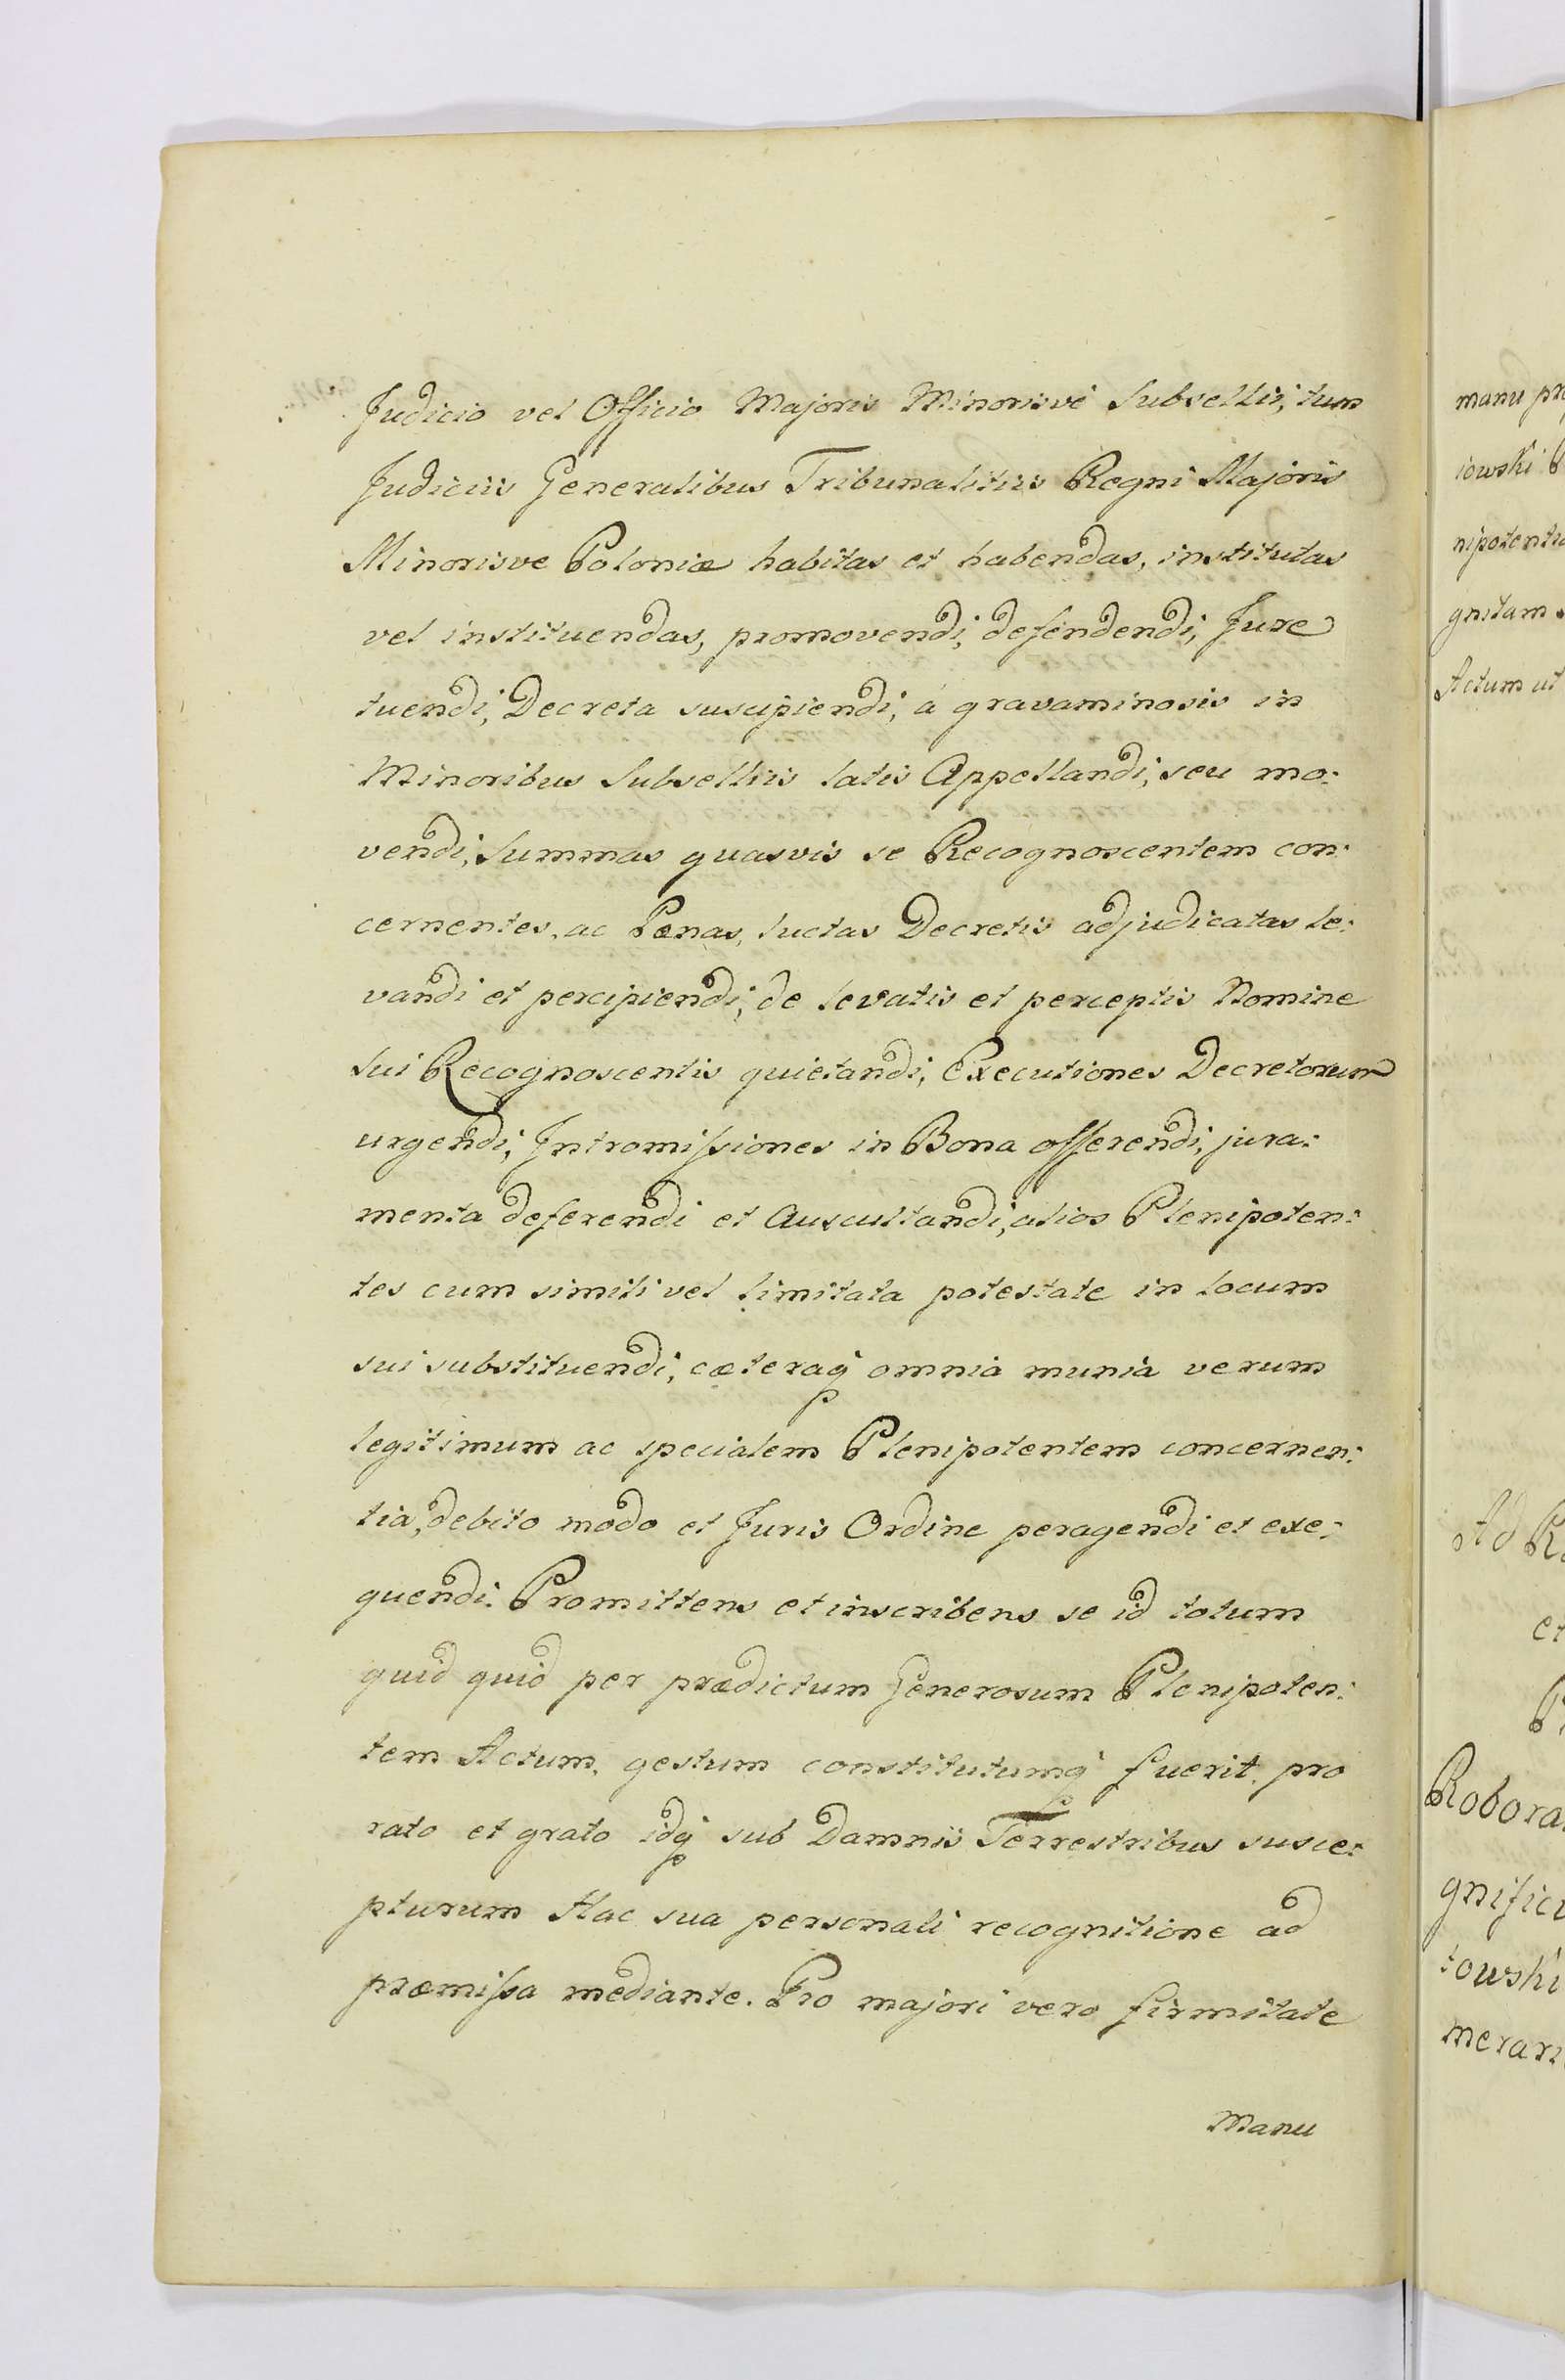 Judicio vel Officio Majoris Minorisve Subsellii, tum
Judiciis Generalibus Tribunalitiis Regni Majoris
Minorisve Poloniæ habitas et habendas, institutas
vel instituendas, promovendi, defendendi, Jure
tuendi, Decreta suscipiendi, á gravaminosis in
Minoribus Subselliis latis Appellandi, seu mo:
vendi, Summas quasvis se Recognoscentem con:
cernentes, ac Pœnas, luctas Decretis adjudicatas le:
vandi et percipiendi, de levatis et perceptis Nomine
sui Recognoscentis quietandi, Executiones Decretorum
urgendi, Intromissiones in Bona offerendi, jura:
menta deferendi et Auscultandi, alios Plenipoten:
tes cum simili vel limitata potestate in locum
sui substituendi, cæteraq omnia munia verum
legitimum ac specialem Plenipotentem concernen:
tia, debito modo et Juris Ordine peragendi et exe:
quendi. Promittens et inscribens se id totum
quid quid per prædictum Generosum Plenipoten:
tem Actum, gestum constitutumq fuerit, pro
rato et grato idq sub Damnis Terrestribus susce:
pturum Hac sua personali recognitione ad
præmissa mediante. Pro majori vero firmitate
Manu
manu pro
iowski P
nipotentia
gnitam
Actum ut
Ad R
et
Robora
gnific
towski
meran